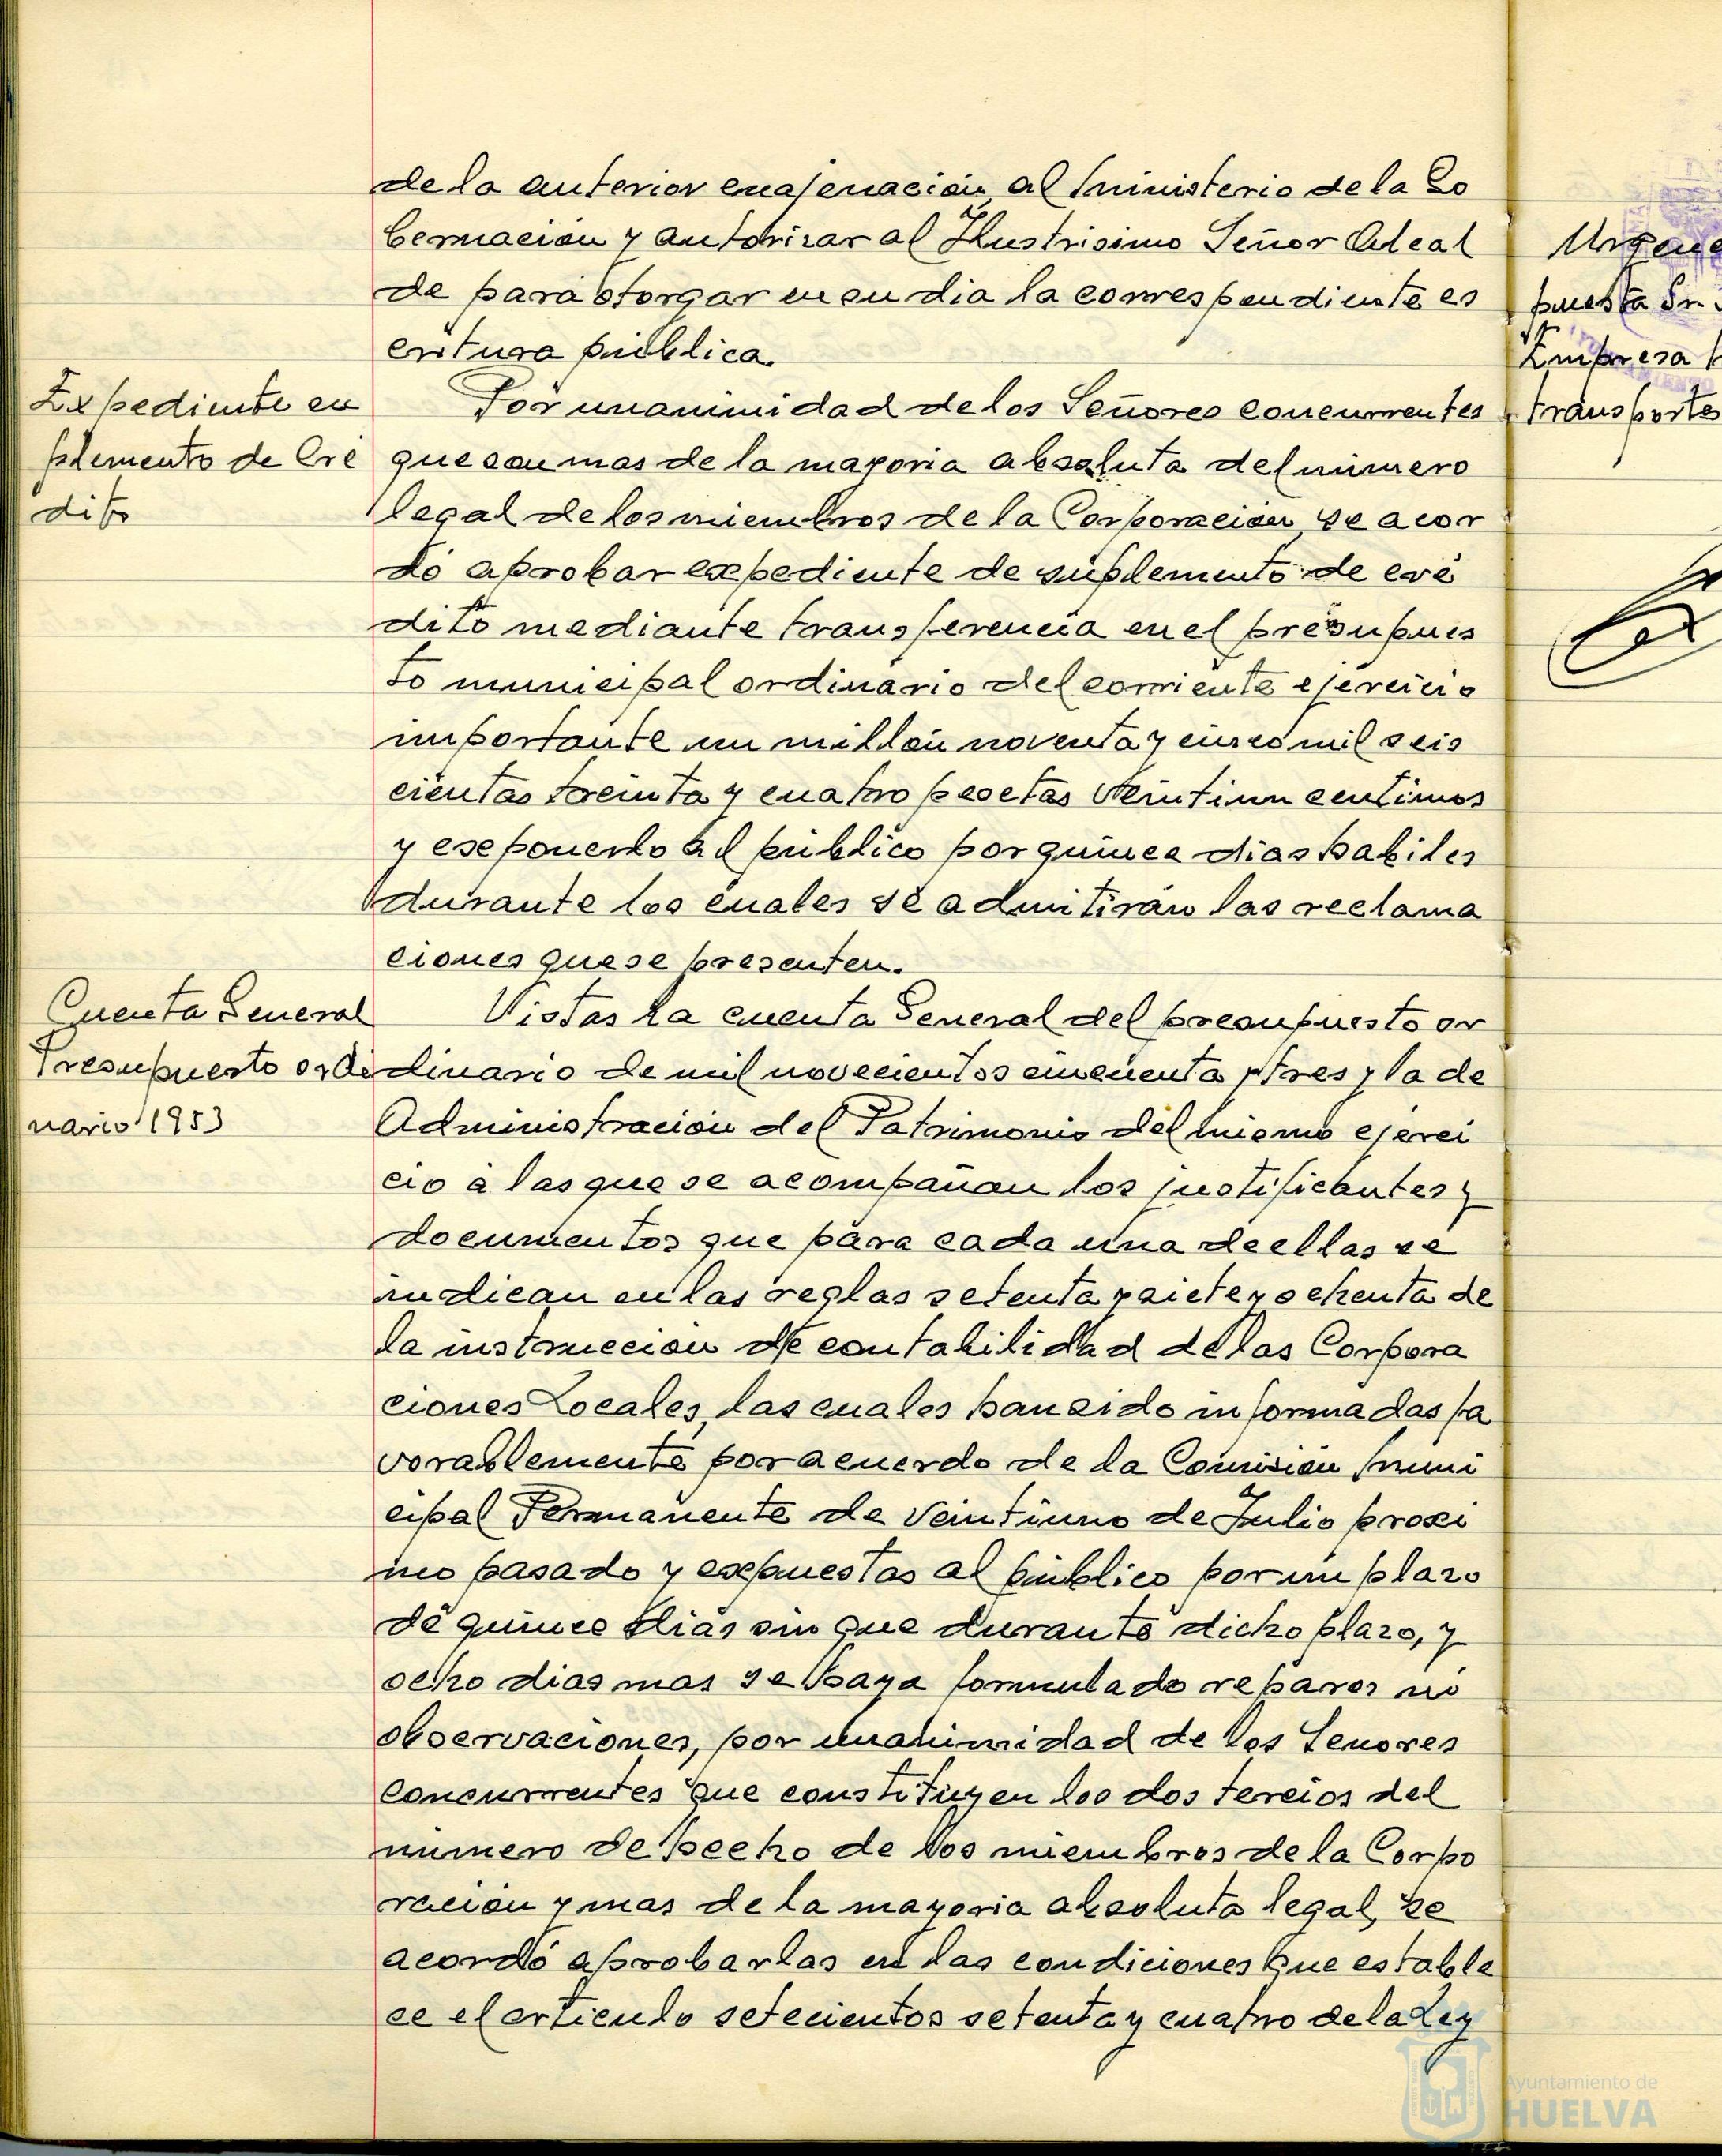 de la anterior enajenación, al Ministerio de la Go
bernación y autorizar al Ilustrisimo Señor Alcal
de para otorgar en su dia la correspondiente es
critura pública.
Expediente su
plemento de Cré
dito
Por unanimidad de los Señores concurrentes
que son mas de la mayoria absoluta del número
legal de los miembros de la Corporación, se acor
dó aprobar expediente de suplemento de cré
dito mediante transferencia en el presupues
to municipal ordinario del corriente ejercicio
importante un millón noventa y cinco mil seis
cientas treinta y cuatro pesetas veintiun centimos
y exponerlo al público por quince dias habiles
durante los cuales se admitirán las reclama
ciones que se presenten.
Cuenta General
Presupuesto ordi
nario 1953
Vistas la cuenta General del presupuesto or
dinario de mil novecientos cincuenta y tres y la de
Administración del Patrimonio del mismo ejerci
cio a las que se acompañan los justificantes y
documentos que para cada una de ellas se
indican en las reglas setenta y siete y ochenta de
la instrucción de contabilidad de las Corpora
ciones Locales, las cuales han sido informadas fa
vorablemente por acuerdo de la Comisión Muni
cipal Permanente de veintiuno de Julio proxi
mo pasado y expuestas al público por un plazo
de quince dias sin que durante dicho plazo, y
ocho dias mas se haya formulado reparos ni
observaciones, por unanimidad de los Señores
concurrentes que constituyen los dos tercios del
número de hecho de los miembros de la Corpo
ración y mas de la mayoria absoluta legal, se
acordó aprobarlas en las condiciones que estable
ce el articulo setecientos setenta y cuatro de la Ley
Urgenc
puesta Sr.
Empresa
transportes
Ayuntamiento de
HUELVA